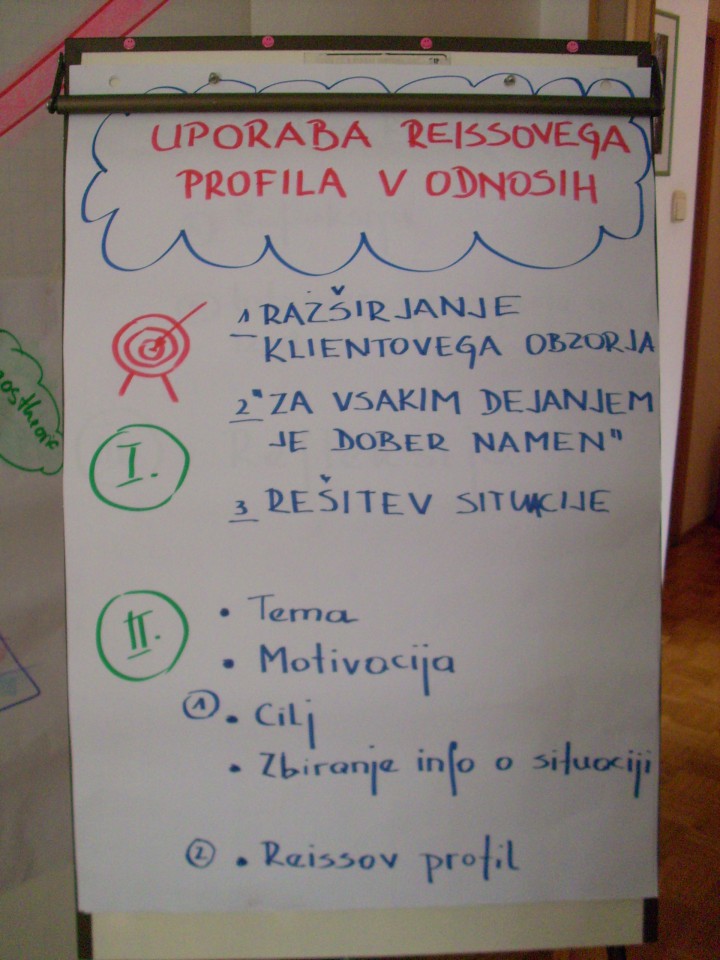 UPORABA REISSOVEGA
PROFILA V ODNOSIH
1 RAZŠIRJANJE
KLIENTOVEGA OBZORJA
2 "ZA VSAKIM DEJANJEM
JE DOBER NAMEN"
I.
3 REŠITEV SITUACIJE
II.
• Tema
• Motivacija
1 • Cilj
• Zbiranje info o situaciji
2 • Reissov profil